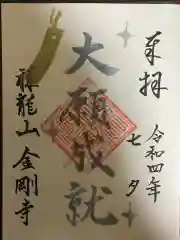 奉拝
令和四年
七夕
大願成就
禅龍山 金剛寺